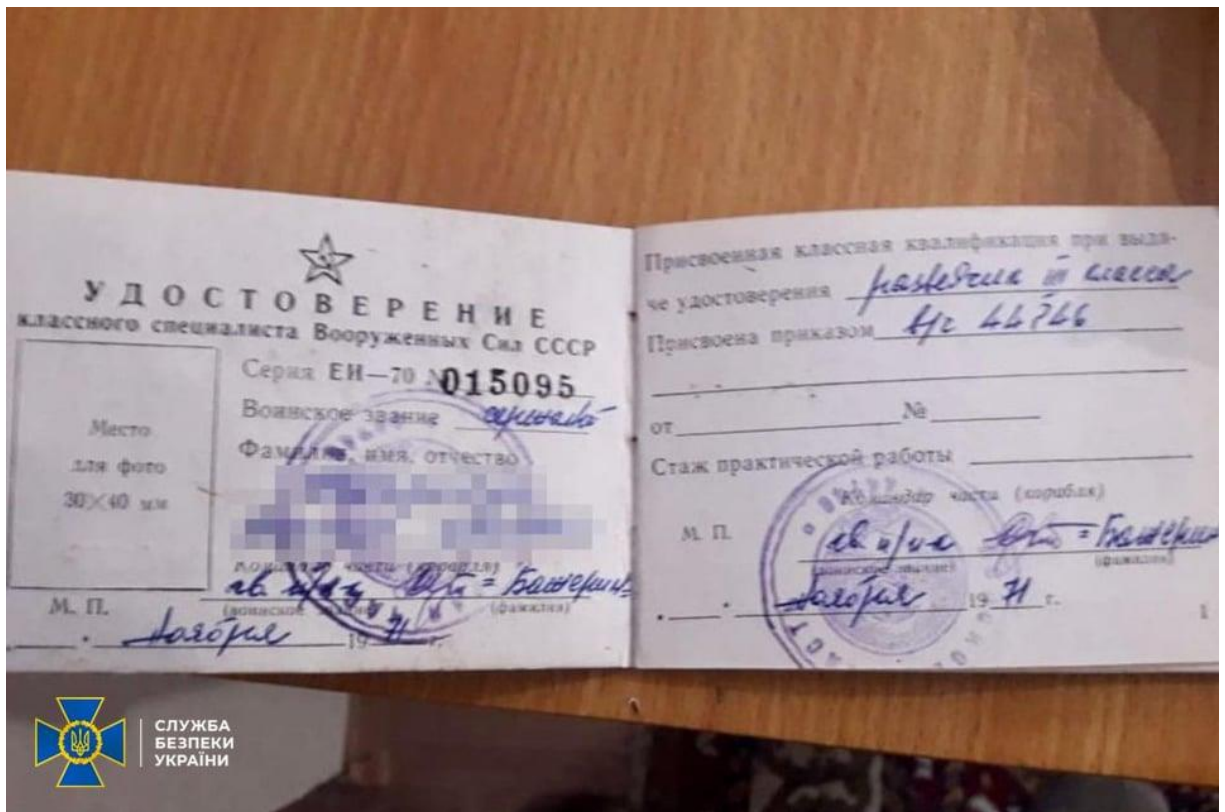 УДОСТОВЕРЕНИЕ
классного специалиста Вооруженных Сил СССР
Серия ЕИ—70 № 015095
Воинское звание
Фамилия, имя, отчество
Место
для фото
30×40 мм
Командир части (корабля)
(воинское звание) (фамилия)
М. П.
ноября 1971 г.
Присвоенная классная квалификация при выда-
че удостоверения разведчик III класса
Присвоена приказом в/ч 44746
от № 
Стаж практической работы
Командир части (корабля)
М. П.
(воинское звание) (фамилия)
ноября 1971 г.
1
СЛУЖБА
БЕЗПЕКИ
УКРАЇНИ